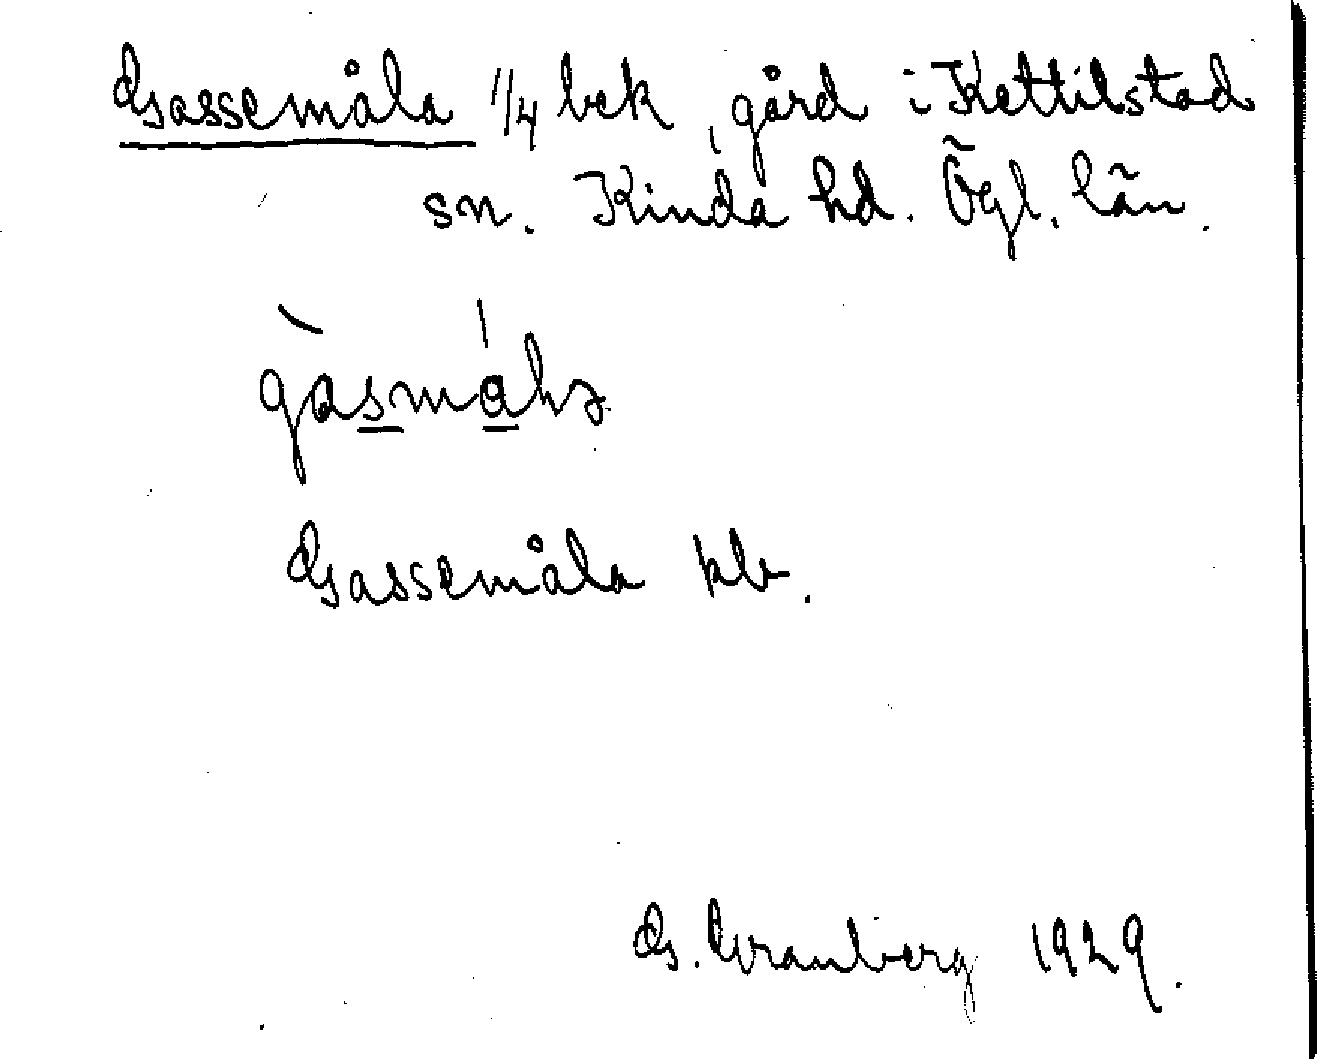 Gassemåla 1/4 bek, gård i Kettilstad
sn. Kinda hd. Ögl. län.
Gassemåla kb.
G. Granberg 1929.